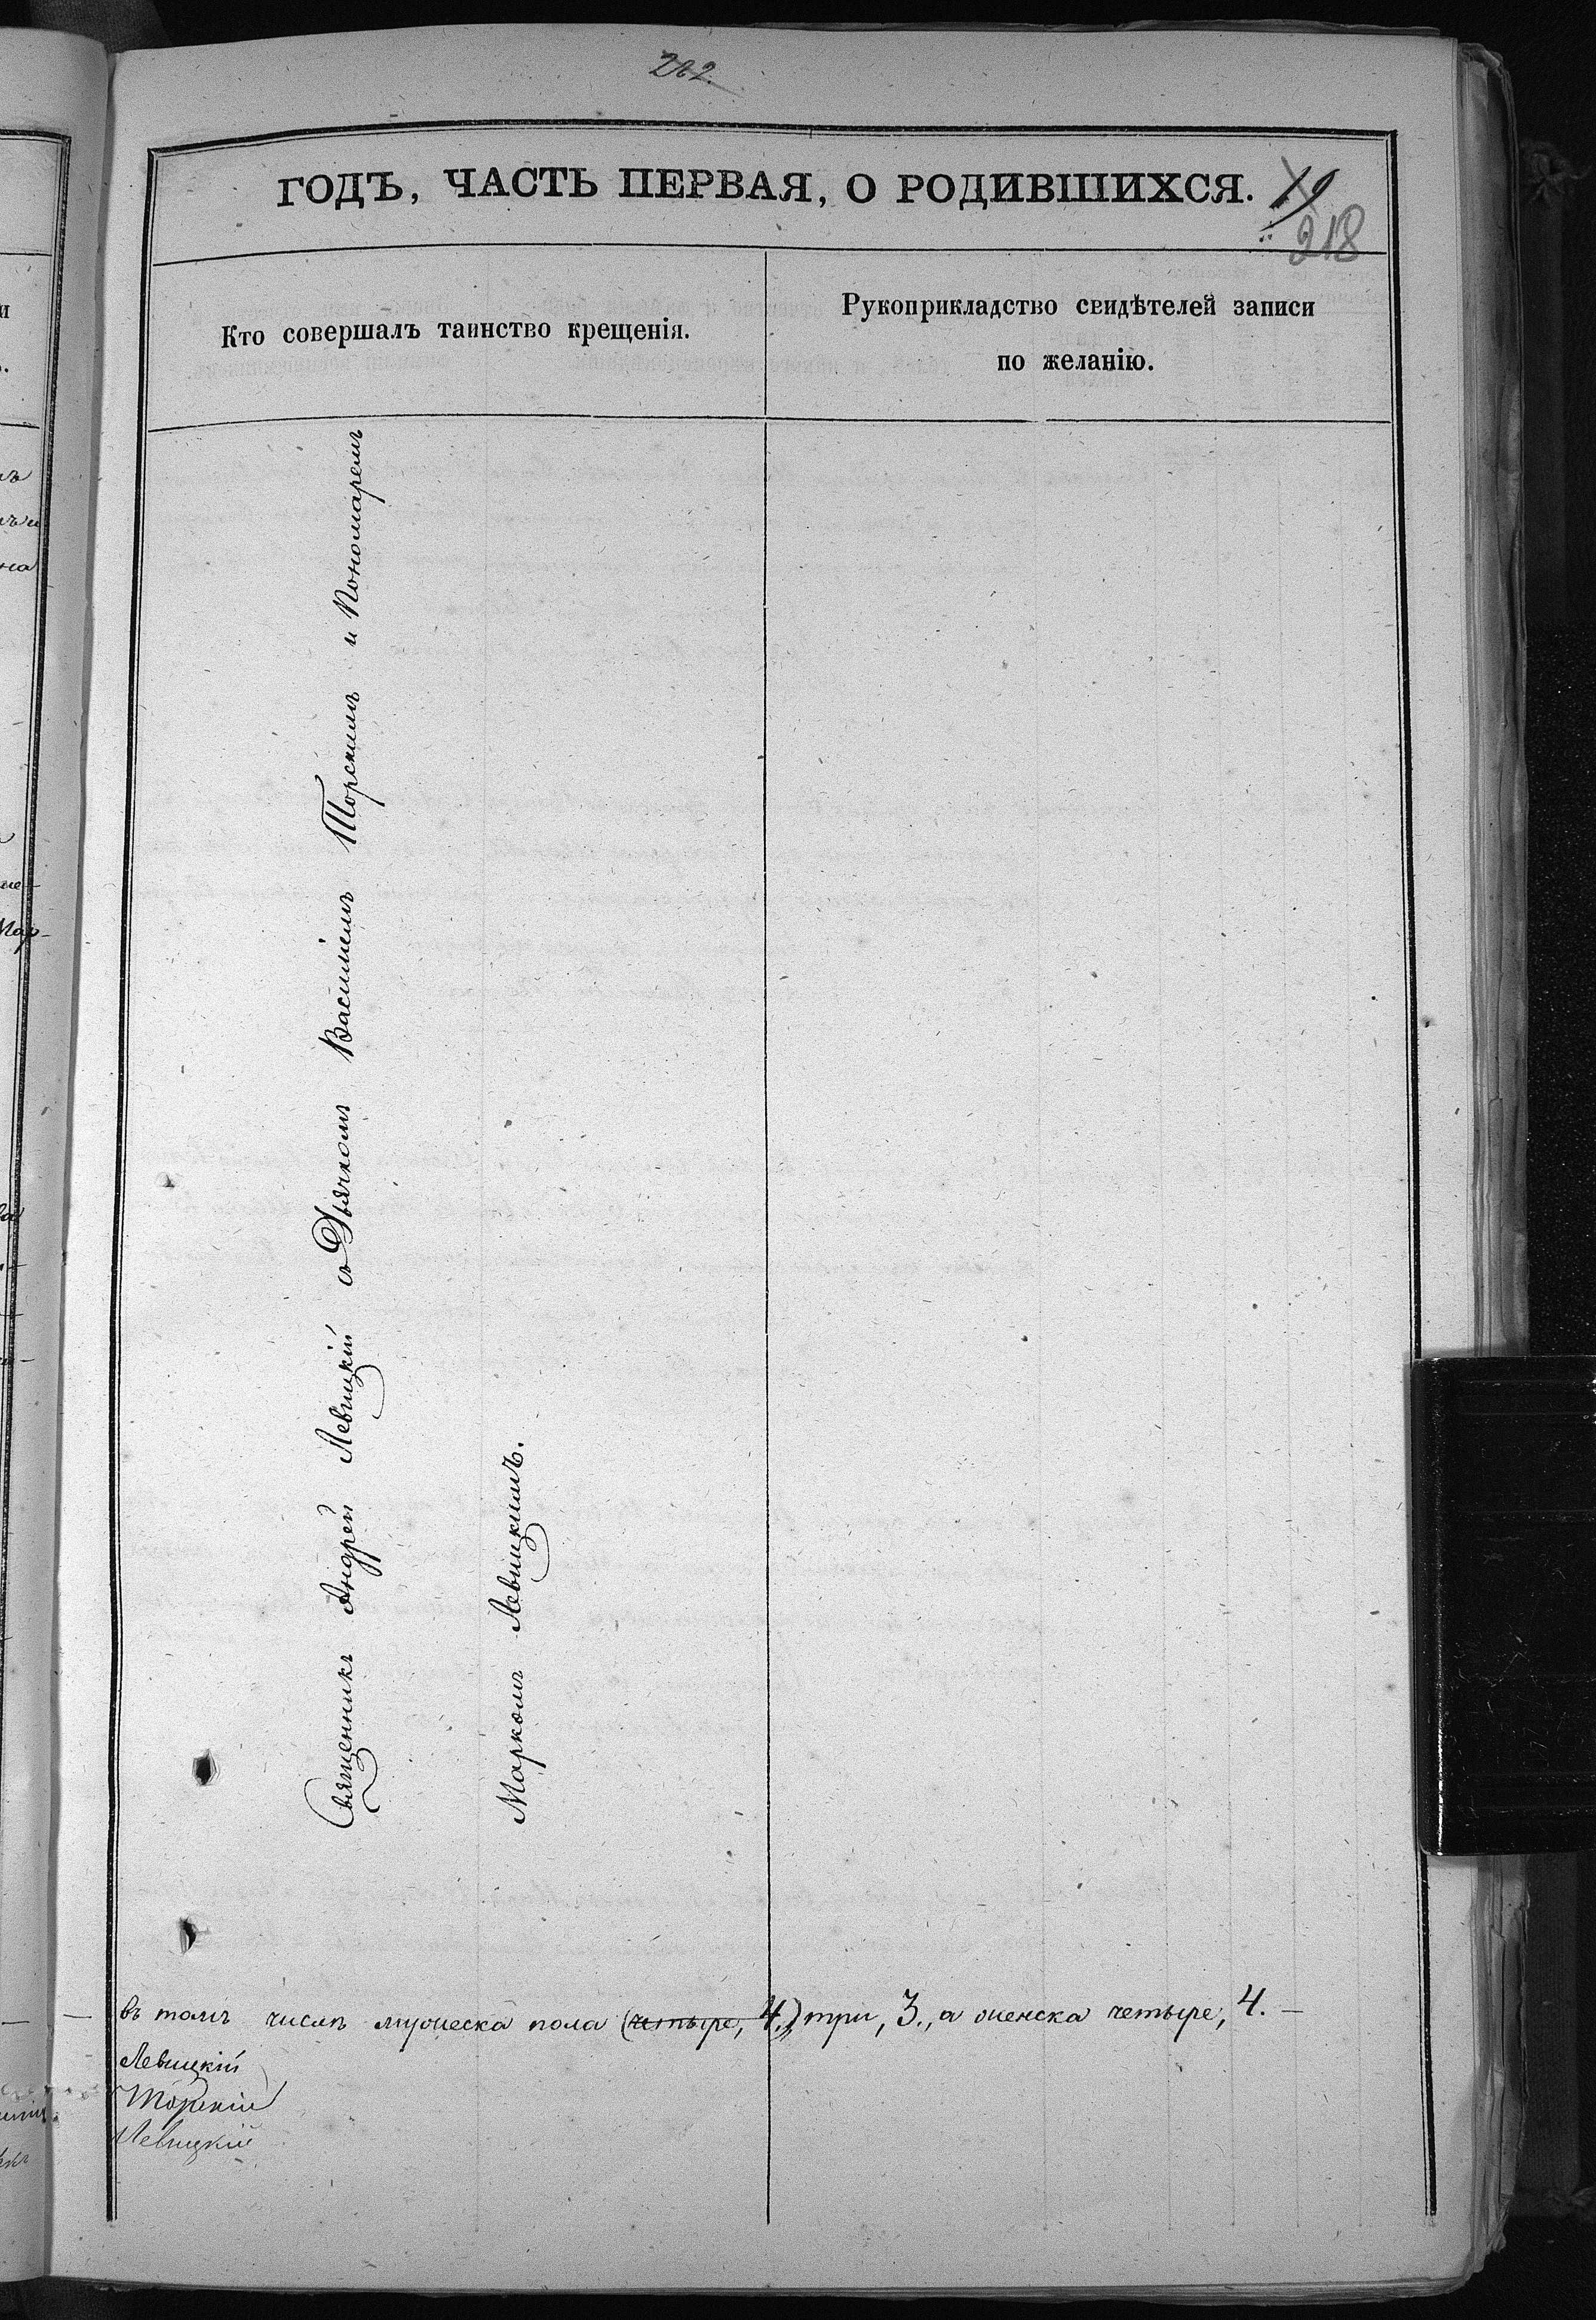 262.
ГОДЪ, ЧАСТЬ ПЕРВАЯ, О РОДИВШИХСЯ. 19
218
Кто совершалъ таинство крещенія.
Рукоприкладство свидѣтелей записи
по желанію.
Священникъ Андрей Левицкій съ Дьячкомъ Василіемъ Торскимъ и Пономаремъ
Маркомъ Левицкимъ.
въ томъ числѣ мужеска пола (четыре, 4.) три, 3., а женска четыре, 4. —
Левицкій
Торскій
Левицкій